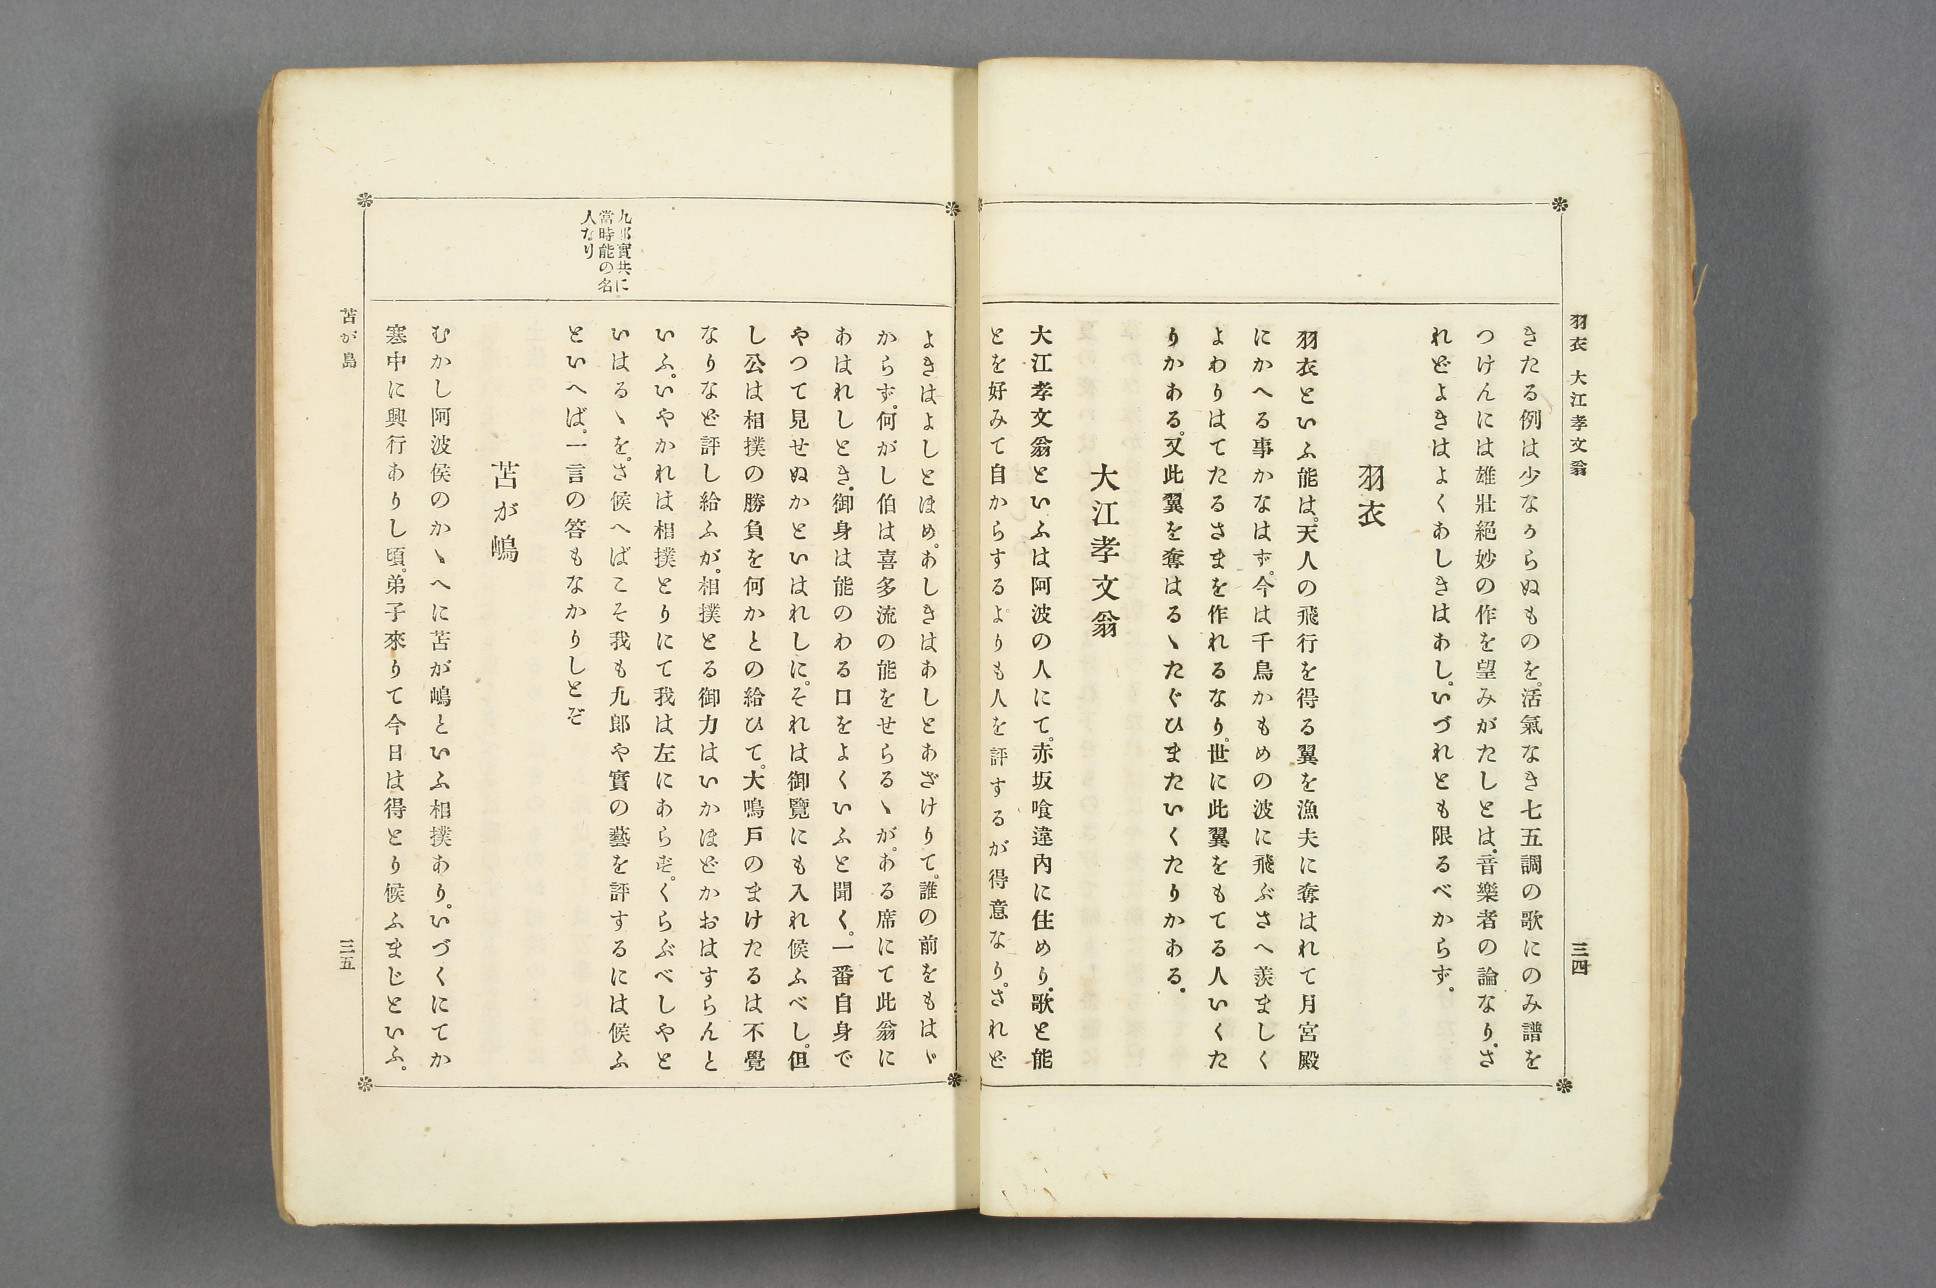 羽衣 大江孝文翁
三四
きたる例は少なからぬものを。活氣なき七五調の歌にのみ譜を
つけんには雄壯絕妙の作を望みがたしとは、音樂者の論なり、さ
れどよきはよくあしきはあし。いづれとも限るべからず。
羽衣
羽衣といふ能は。天人の飛行を得る翼を漁夫に奪はれて月宮殿
にかへる事かなはず。今は千鳥かもめの波に飛ぶさへ羨ましく
よわりはてたるさまを作れるなり。世に此翼をもてる人いくた
りかある。又此翼を奪はるゝたぐひまたいくたりかある。
大江孝文翁
大江孝文翁といふは阿波の人にて。赤坂喰違內に住めり。歌と能
とを好みて自からするよりも人を評するが得意なり。されど
よきはよしとほめ。あしきはあしとあざけりて。誰の前をもはゞ
からず。何がし伯は喜多流の能をせらるゝが。ある席にて此翁に
あはれしとき。御身は能のわる口をよくいふと聞く。一番自身で
やつて見せぬかといはれしに。それは御覽にも入れ候ふべし。但
し公は相撲の勝負を何かとの給ひて。大鳴戸のまけたるは不覺
なりなど評し給ふが。相撲とる御力はいかほどかおはすらんと
いふ。いやかれは相撲とりにて我は左にあらず。くらぶべしやと
いはるゝを。さ候へばこそ我も九郎や實の藝を評するには候ふ
といへば。一言の答もなかりしとぞ
九郎實共に
當時能の名
人なり
苫が嶋
むかし阿波侯のかゝへに苫が嶋といふ相撲あり。いづくにてか
寒中に興行ありし頃。弟子來りて今日は得とり候ふまじといふ。
苫が島
三五